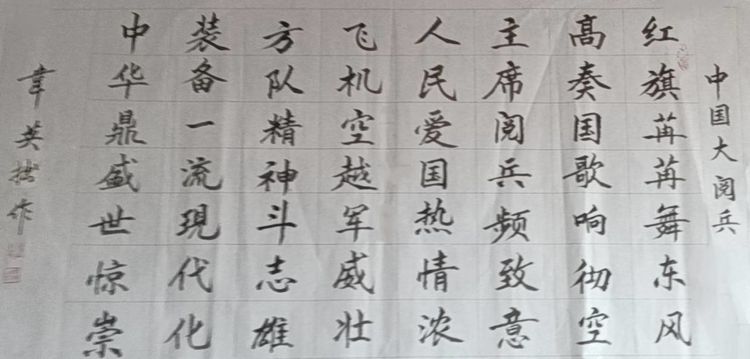 中国大阅兵
红旗苒苒舞东风
高奏国歌响彻空
主席阅兵频致意
人民爱国热情浓
飞机空越军威壮
方队精神斗志雄
装备一流现代化
中华鼎盛世惊崇
韦英拙作